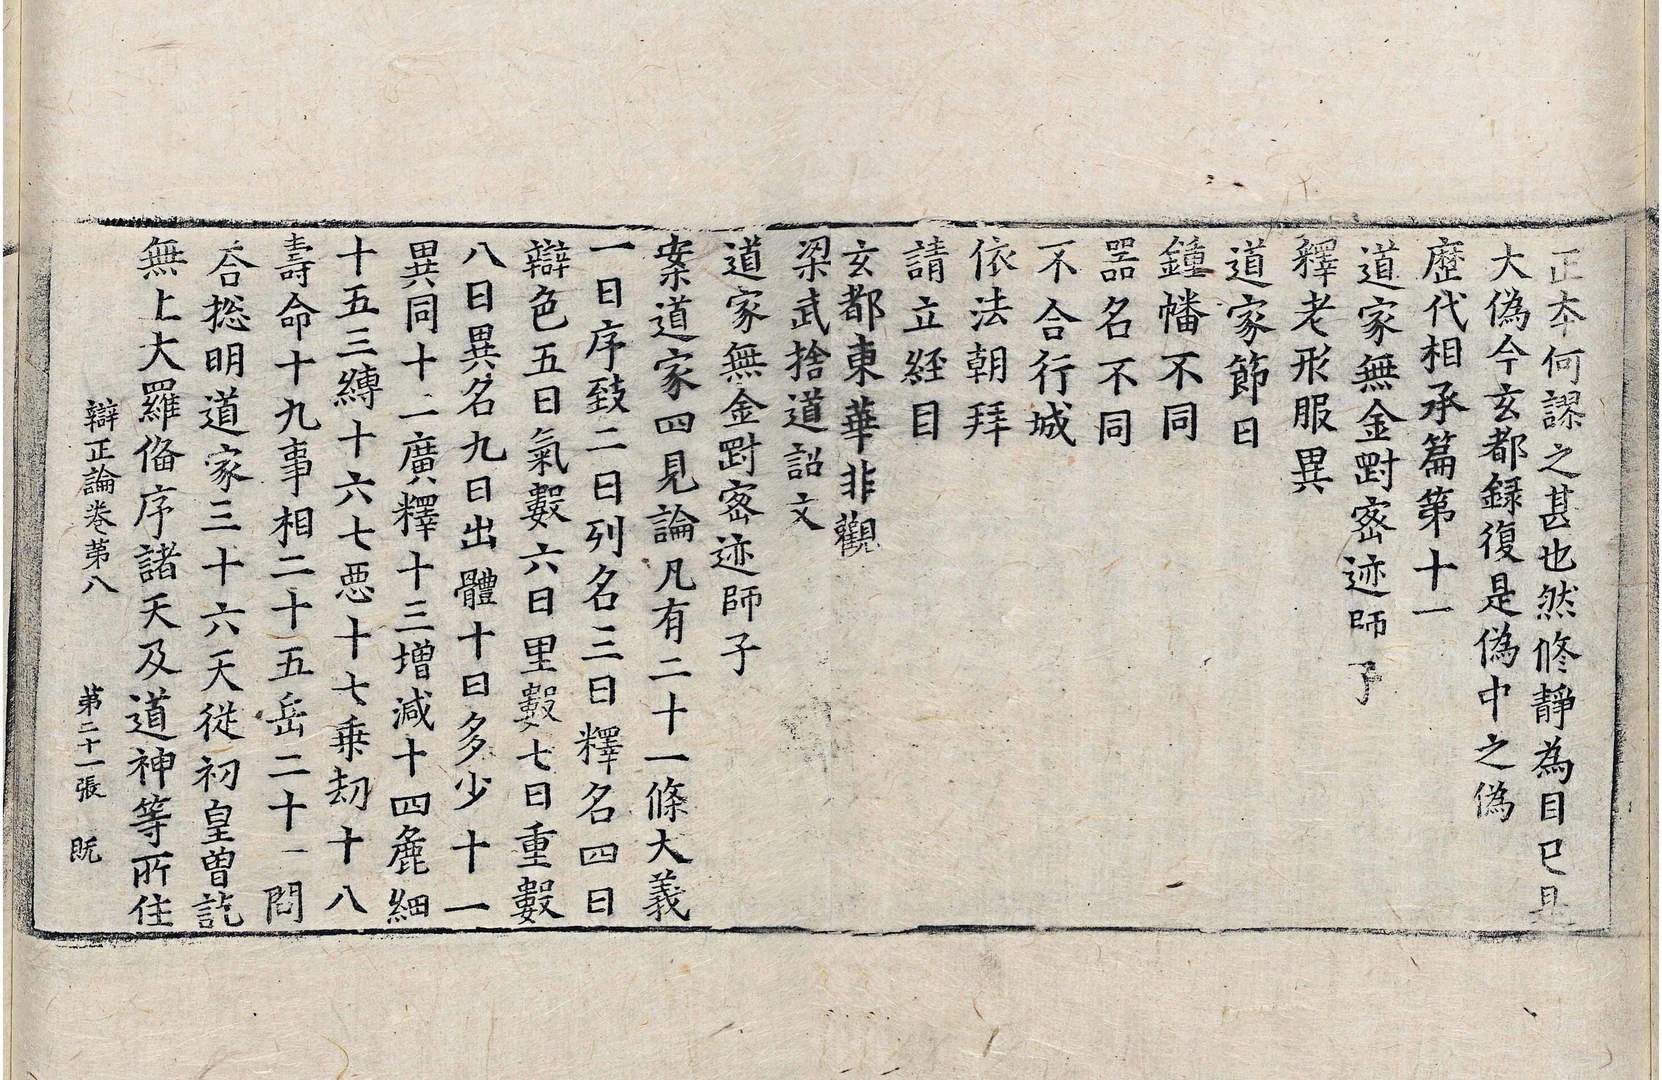 正本何謬之甚也然修静為目已是
大偽今玄都録復是偽中之偽
歷代相承篇第十一
道家無金剛宻迹師子
釋老形服異
道家節日
鍾幡不同
器名不同
不合行城
依法朝拜
請立経目
玄都東華非觀
梁武捨道詔文
道家無金剛宻迹師子
案道家四見論凡有二十一條大義
一曰序致二曰列名三曰釋名四曰
辯色五曰氣數六曰里數七曰重數
八曰異名九曰出體十曰多少十一
異同十二廣釋十三增減十四麁細
十五三縛十六七惡十七乗劫十八
壽命十九事相二十五岳二十一問
荅揔明道家三十六天從初皇曾訖
無上大羅俻序諸天及道神等所住
辯正論卷第八　第二十一張　既